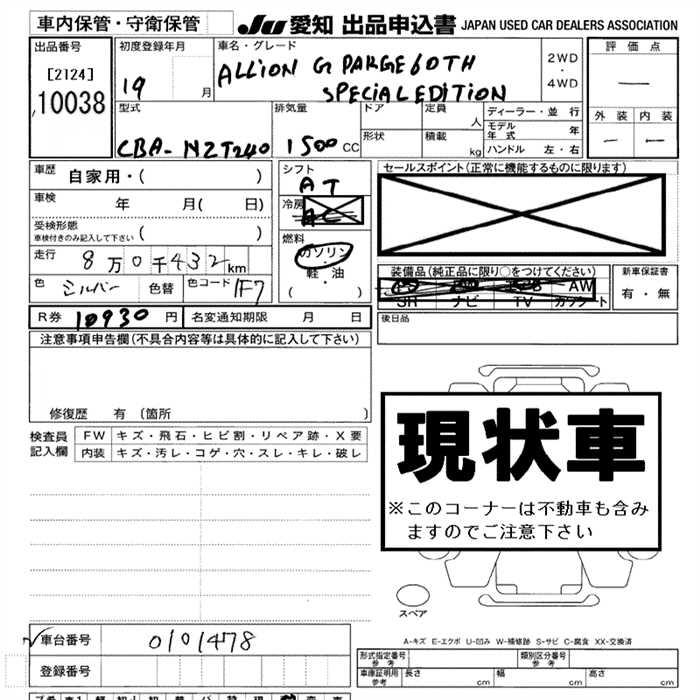 車内保管・守衛保管
JU 愛知 出品申込書 JAPAN USED CAR DEALERS ASSOCIATION
出品番号
[2124]
10038
初度登録年月
19 月
車名・グレード
ALLION G PARGE 60TH
SPECIAL EDITION
2WD
・
4WD
評価点
—
外装 内装
— —
型式
CBA-NZT240
排気量
1500 CC
ドア
定員
人
形状
積載
kg
ディーラー・並行
モデル年式 年
ハンドル 左・右
車歴 自家用・( )
車検 年 月( 日)
受検形態
車検付きのみ記入して下さい ( )
走行 8万0千432km
色 シルバー 色替 色コード 1F7
シフト
AT
冷房
AC
燃料
ガソリン
・
軽・油
( )
セールスポイント(正常に機能するものに限ります)
装備品(純正品に限り○をつけてください)
AW
SR ナビ TV カワシート
新車保証書
有・無
R券 10930 円 名変通知期限 月 日
後日品
注意事項申告欄(不具合内容等は具体的に記入して下さい)
修復歴 有(箇所 )
検査員
記入欄
FW キズ・飛石・ヒビ割・リペア跡・X要
内装 キズ・汚レ・コゲ・穴・スレ・キレ・破レ
現状車
※このコーナーは不動車も含み
ますのでご注意下さい
スペア
A-キズ E-エクボ U-凹み W-補修跡 S-サビ C-腐食 XX-交換済
車台番号 0101478
登録番号
形式指定番号
参考
類別区分番号
参考
車庫証明用
参考
長さ cm 幅 cm 高さ cm